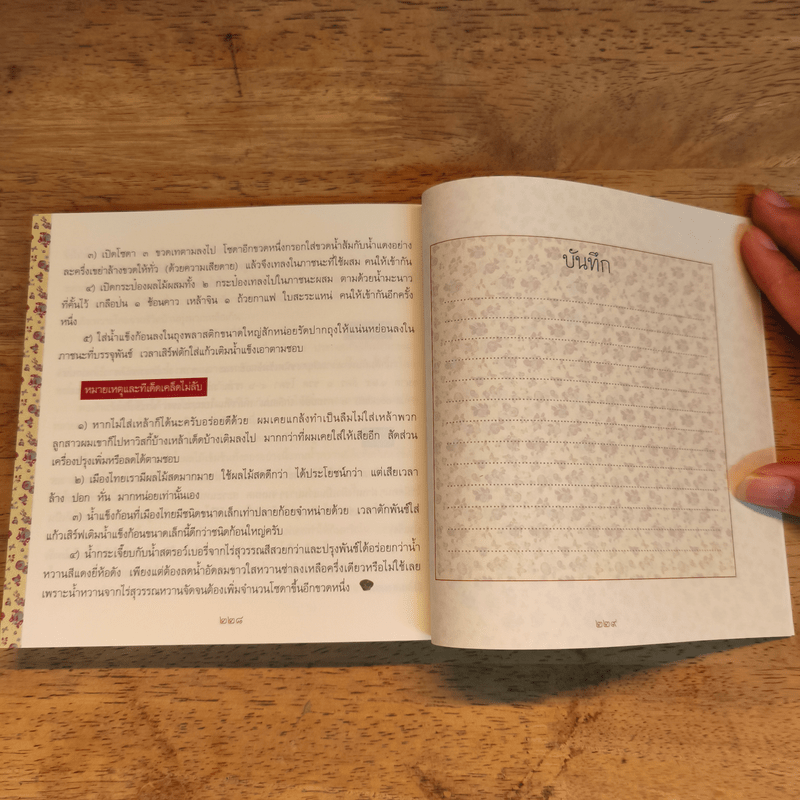 ๓) เปิดโซดา ๓ ขวดเทตามลงไป โซดาอีกขวดหนึ่งกรอกใส่ขวดน้ำส้มกับน้ำแดงอย่าง
ละครึ่งเขย่าล้างขวดให้ทั่ว (ด้วยความเสียดาย) แล้วจึงเทลงในภาชนะที่ใช้ผสม คนให้เข้ากัน
๔) เปิดกระป๋องผลไม้ผสมทั้ง ๒ กระป๋องเทลงไปในภาชนะผสม ตามด้วยน้ำมะนาว
ที่คั้นไว้ เกลือป่น ๑ ช้อนคาว เหล้าจิน ๑ ถ้วยกาแฟ ใบสะระแหน่ คนให้เข้ากันอีกครั้ง
หนึ่ง
๕) ใส่น้ำแข็งก้อนลงในถุงพลาสติกขนาดใหญ่สักหน่อยรัดปากถุงให้แน่นหย่อนลงใน
ภาชนะที่บรรจุพันช์ เวลาเสิร์ฟตักใส่แก้วเติมน้ำแข็งเอาตามชอบ
หมายเหตุและทีเด็ดเคล็ดไม่ลับ
๑) หากไม่ใส่เหล้าก็ได้นะครับอร่อยดีด้วย ผมเคยแกล้งทำเป็นลืมไม่ใส่เหล้าพวก
ลูกสาวผมเขาก็ไปหาวิสกี้บ้างเหล้าเด็ดบ้างเติมลงไป มากกว่าที่ผมเคยใส่ให้เสียอีก สัดส่วน
เครื่องปรุงเพิ่มหรือลดได้ตามชอบ
๒) เมืองไทยเรามีผลไม้สดมากมาย ใช้ผลไม้สดดีกว่า ได้ประโยชน์กว่า แต่เสียเวลา
ล้าง ปอก หั่น มากหน่อยเท่านั้นเอง
๓) น้ำแข็งก้อนที่เมืองไทยมีชนิดขนาดเล็กเท่าปลายก้อยจำหน่ายด้วย เวลาตักพันช์ใส่
แก้วเสิร์ฟเติมน้ำแข็งก้อนขนาดเล็กนี้ดีกว่าชนิดก้อนใหญ่ครับ
๔) น้ำกระเจี๊ยบกับน้ำสตรอว์เบอรี่จากไร่สุวรรณสีสวยกว่าและปรุงพันช์ได้อร่อยกว่าน้ำ
หวานสีแดงยี่ห้อดัง เพียงแต่ต้องลดน้ำอัดลมขาวใสหวานซ่าลงเหลือครึ่งเดียวหรือไม่ใช้เลย
เพราะน้ำหวานจากไร่สุวรรณหวานจัดจนต้องเพิ่มจำนวนโซดาขึ้นอีกขวดหนึ่ง
๒๒๘
บันทึก
๒๒๙